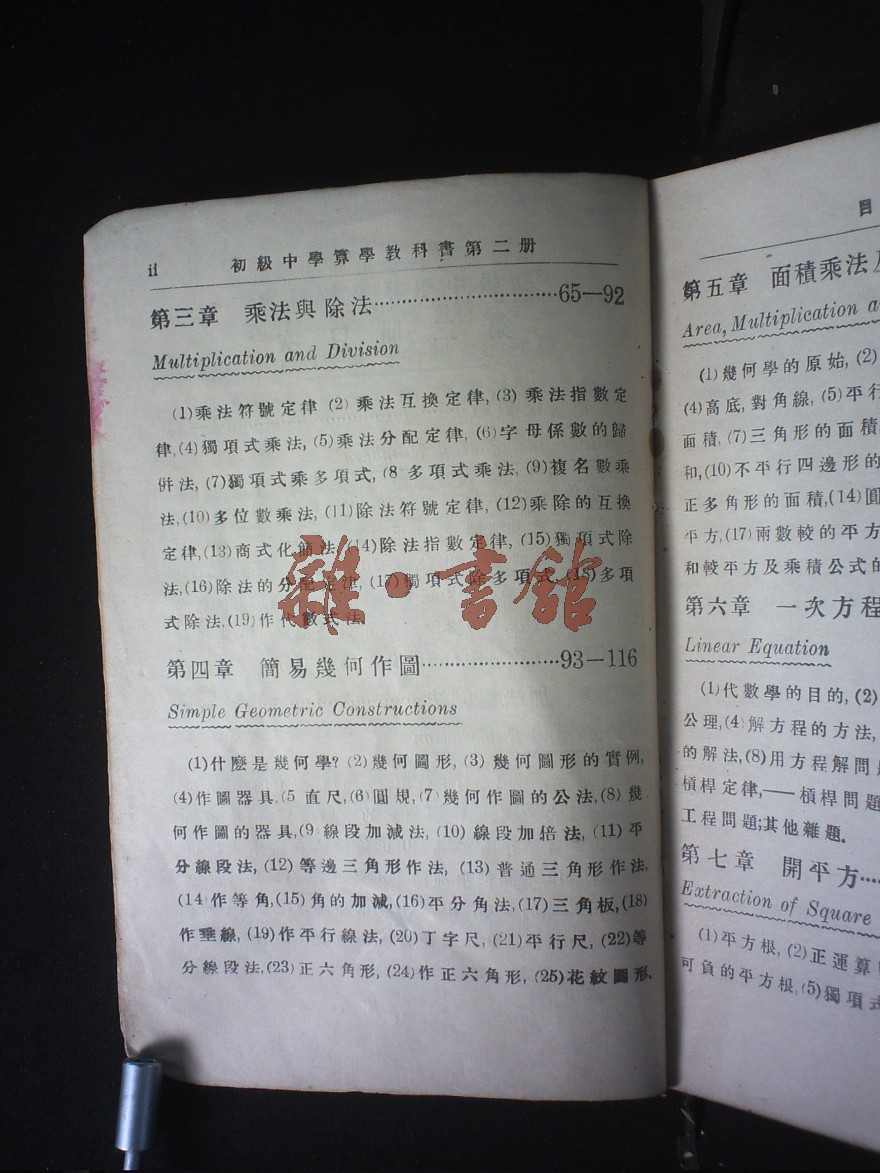 ii 初級中學算學教科書第二册
第三章 乘法與除法……………………………65—92
Multiplication and Division
(1)乘法符號定律 (2) 乘法互換定律, (3) 乘法指數定
律,(4)獨項式乘法, (5)乘法分配定律, (6)字母係數的歸
併法, (7)獨項式乘多項式, (8 多項式乘法, (9)複名數乘
法,(10)多位數乘法, (11)除法符號定律, (12)乘除的互換
定律,(13)商式化簡法,(14)除法指數定律, (15)獨項式除
法,(16)除法的分配定律, (17)獨項式除多項式, (18)多項
式除法,(19)作代數式法.
第四章 簡易幾何作圖……………………93—116
Simple Geometric Constructions
(1)什麼是幾何學? (2)幾何圖形, (3) 幾何圖形的實例,
(4)作圖器具,(5 直尺,(6)圓規,(7 幾何作圖的公法,(8) 幾
何作圖的器具,(9 線段加減法, (10) 線段加倍法, (11) 平
分線段法, (12) 等邊三角形作法, (13) 普通三角形作法,
(14 作等角,(15)角的加減,(16)平分角法,(17)三角板,(18)
作垂線, (19)作平行線法, (20)丁字尺, (21)平行尺, (22)等
分線段法,(23)正六角形, (24)作正六角形, (25)花紋圖形.
雜·書館
目
第五章 面積乘法
Area, Multiplication a
(1)幾何學的原始, (2)
(4)高底, 對角線, (5)平行
面積, (7)三角形的面積
和,(10)不平行四邊形的
正多角形的面積,(14)圓
平方,(17)兩數較的平方
和較平方及乘積公式的
第六章 一次方程
Linear Equation
(1)代數學的目的, (2)
公理,(4)解方程的方法,
的解法,(8)用方程解問題
槓桿定律,——槓桿問題
工程問題;其他雜題.
第七章 開平方…
Extraction of Square
(1)平方根, (2)正運算
可負的平方根,(5)獨項式